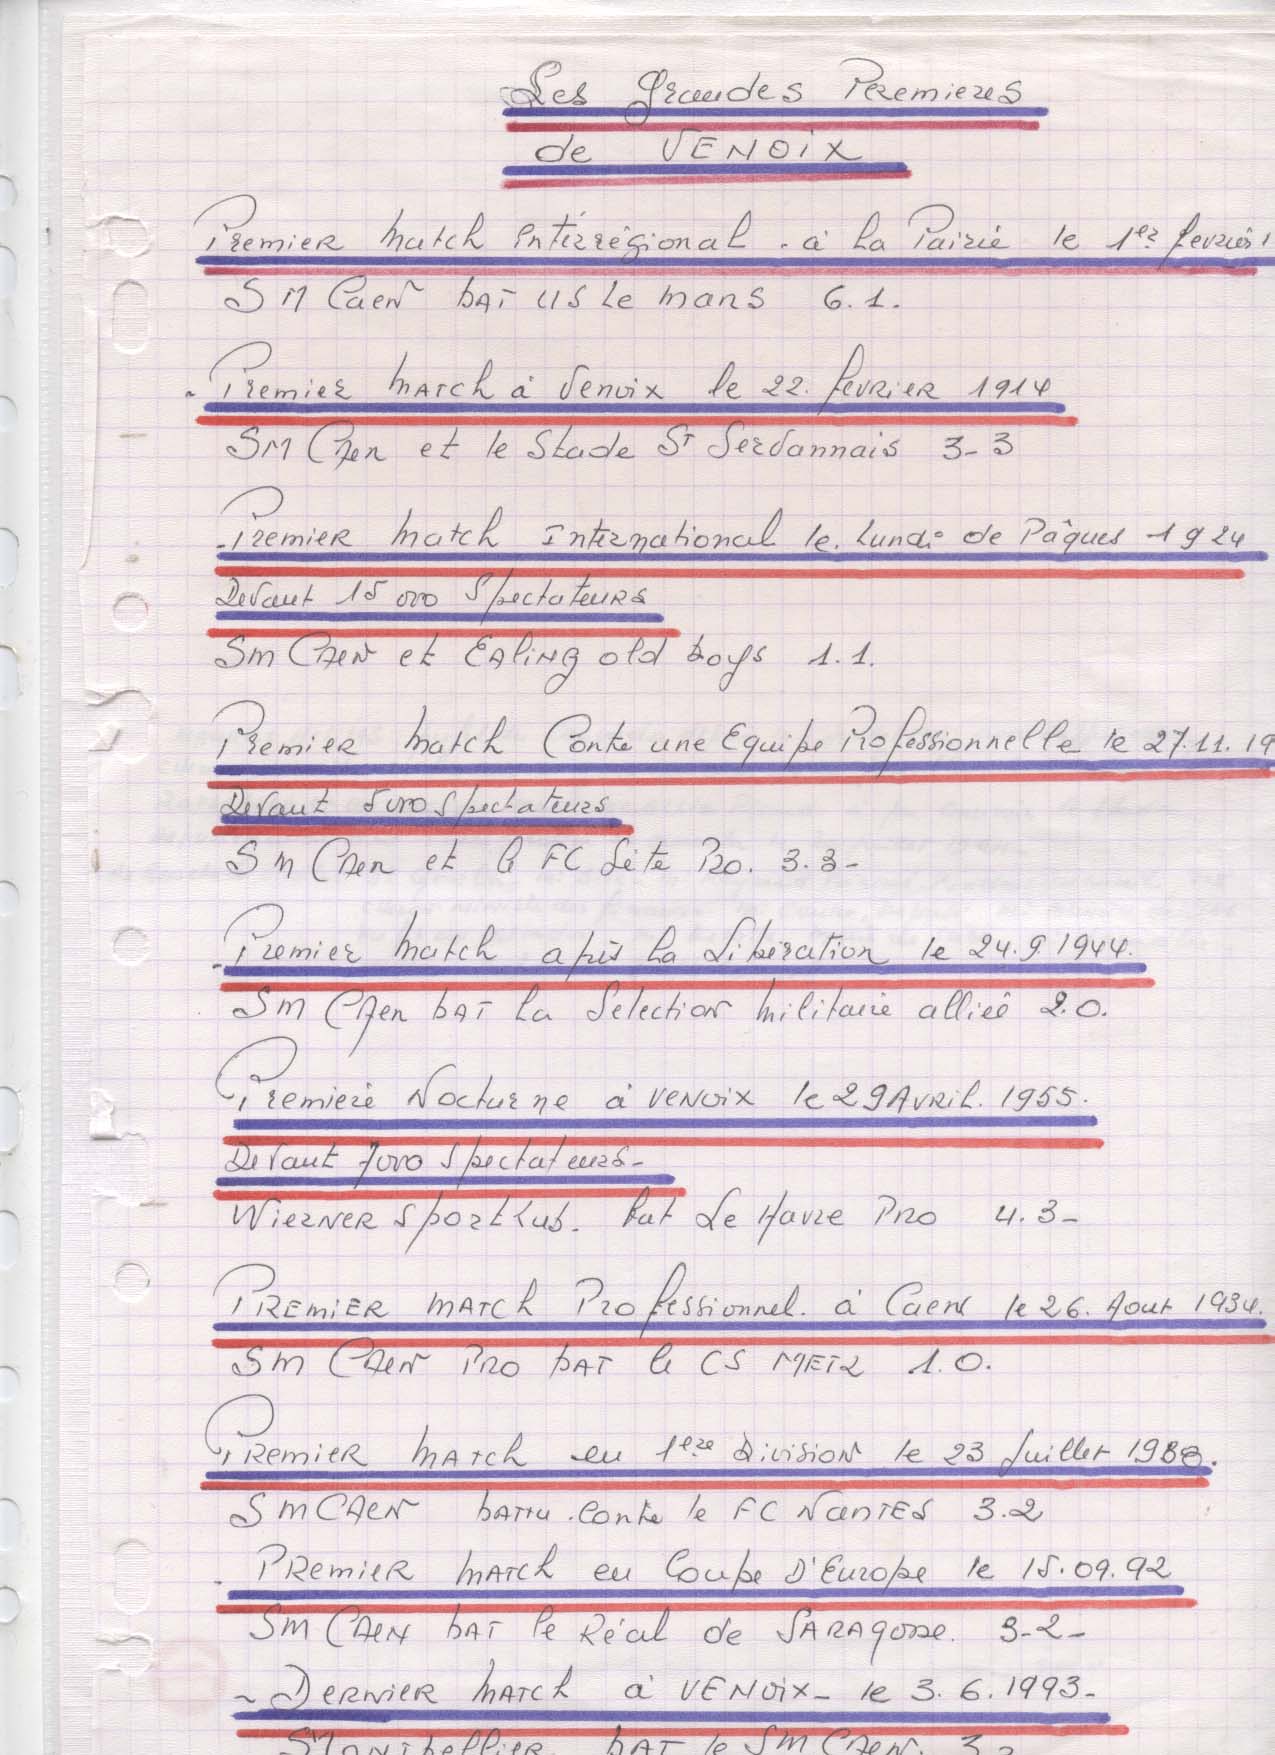 Les Grandes Premieres
de VENOIX
Premier match Intérrégional - à la Pairie le 1er fevrier
SM Caen bat US Le mans 6.1.
- Premier match à Venoix le 22. fevrier 1914
SM Caen et le Stade St Servannais 3-3
- Premier match International le lundi de Pâques 1924
Devant 15 000 Spectateurs
Sm Caen et Ealing old boys 1.1.
Premier match Contre une Equipe Professionnelle le 27.11.19
Devant 5000 Spectateurs
Sm Caen et le FC Sète Pro. 3.3-
- Premier match après la Libération le 24.9.1944.
Sm Caen bat la Selection militaire alliée 2.0.
Premiere Nocturne à VENOIX le 29 Avril. 1955.
Devant 7000 Spectateurs-
Wierner Sportklub. bat Le Havre Pro 4.3-
Premier match Professionnel. à Caen le 26. Aout 1934.
Sm Caen Pro bat le CS METZ 1.0.
Premier match en 1ere Division le 23 Juillet 1988.
SM CAEN battu contre le FC NANTES 3.2
- Premier match en Coupe D'Europe le 15.09.92
Sm Caen bat le Réal de SARAgosse. 3-2-
~ Dernier match à VENOIX- le 3.6.1993-
Montpellier bat le SM Caen. 3